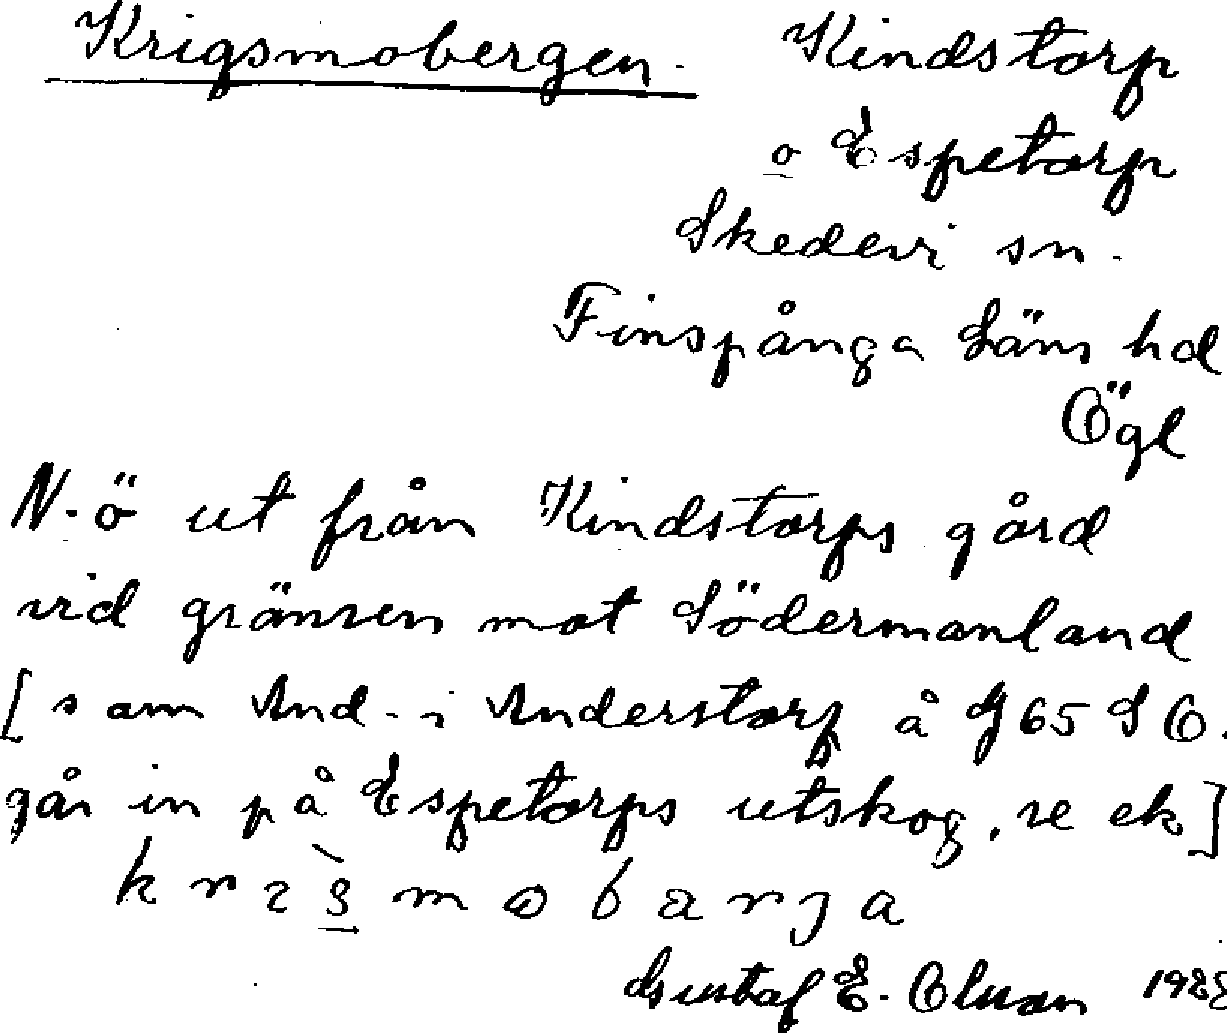 Krigsmobergen. Kindstorp
o Espetorp
Skedevi sn.
Finspånga Läns hd
Ögl
N.ö ut från Kindstorps gård
vid gränsen mot Södermanland
[som And. i Anderstorp å G 65 S O.
går in på Espetorps utskog, se ek]
Gustaf E. Olsson